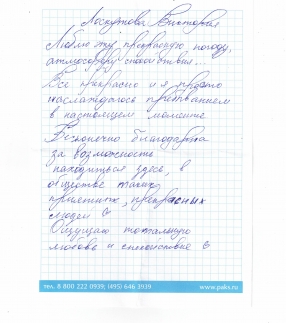 Лоскутова Виктория
Люблю эту прекрасную погоду,
атмосферу спокойствия...
Все прекрасно и я просто
наслаждаюсь пребыванием
в настоящем моменте
Бесконечно благодарна
за возможность
находиться здесь, в
обществе таких
приятных, прекрасных
людей
Ощущаю тотальную
любовь и спокойствие
тел. 8 800 222 0939; (495) 646 3939
www.paks.ru